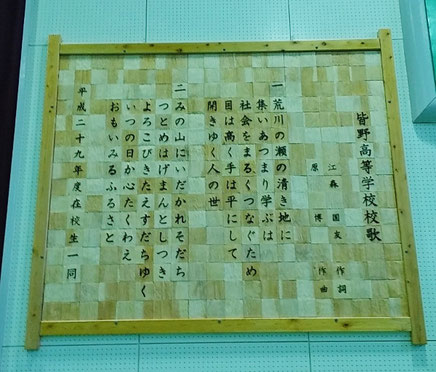 皆野高等学校校歌
江森国友 作詞
原 博 作曲
一 荒川の瀬の清き地に
集いあつまり学ぶは
社会をまるくつなぐため
目は高く手は平にして
開きゆく人の世
二 みの山にいだかれそだち
つとめはげまんとしつき
よろこびきたえすだちゆく
いつの日か心たくわえ
おもいみるふるさと
平成二十九年度在校生一同